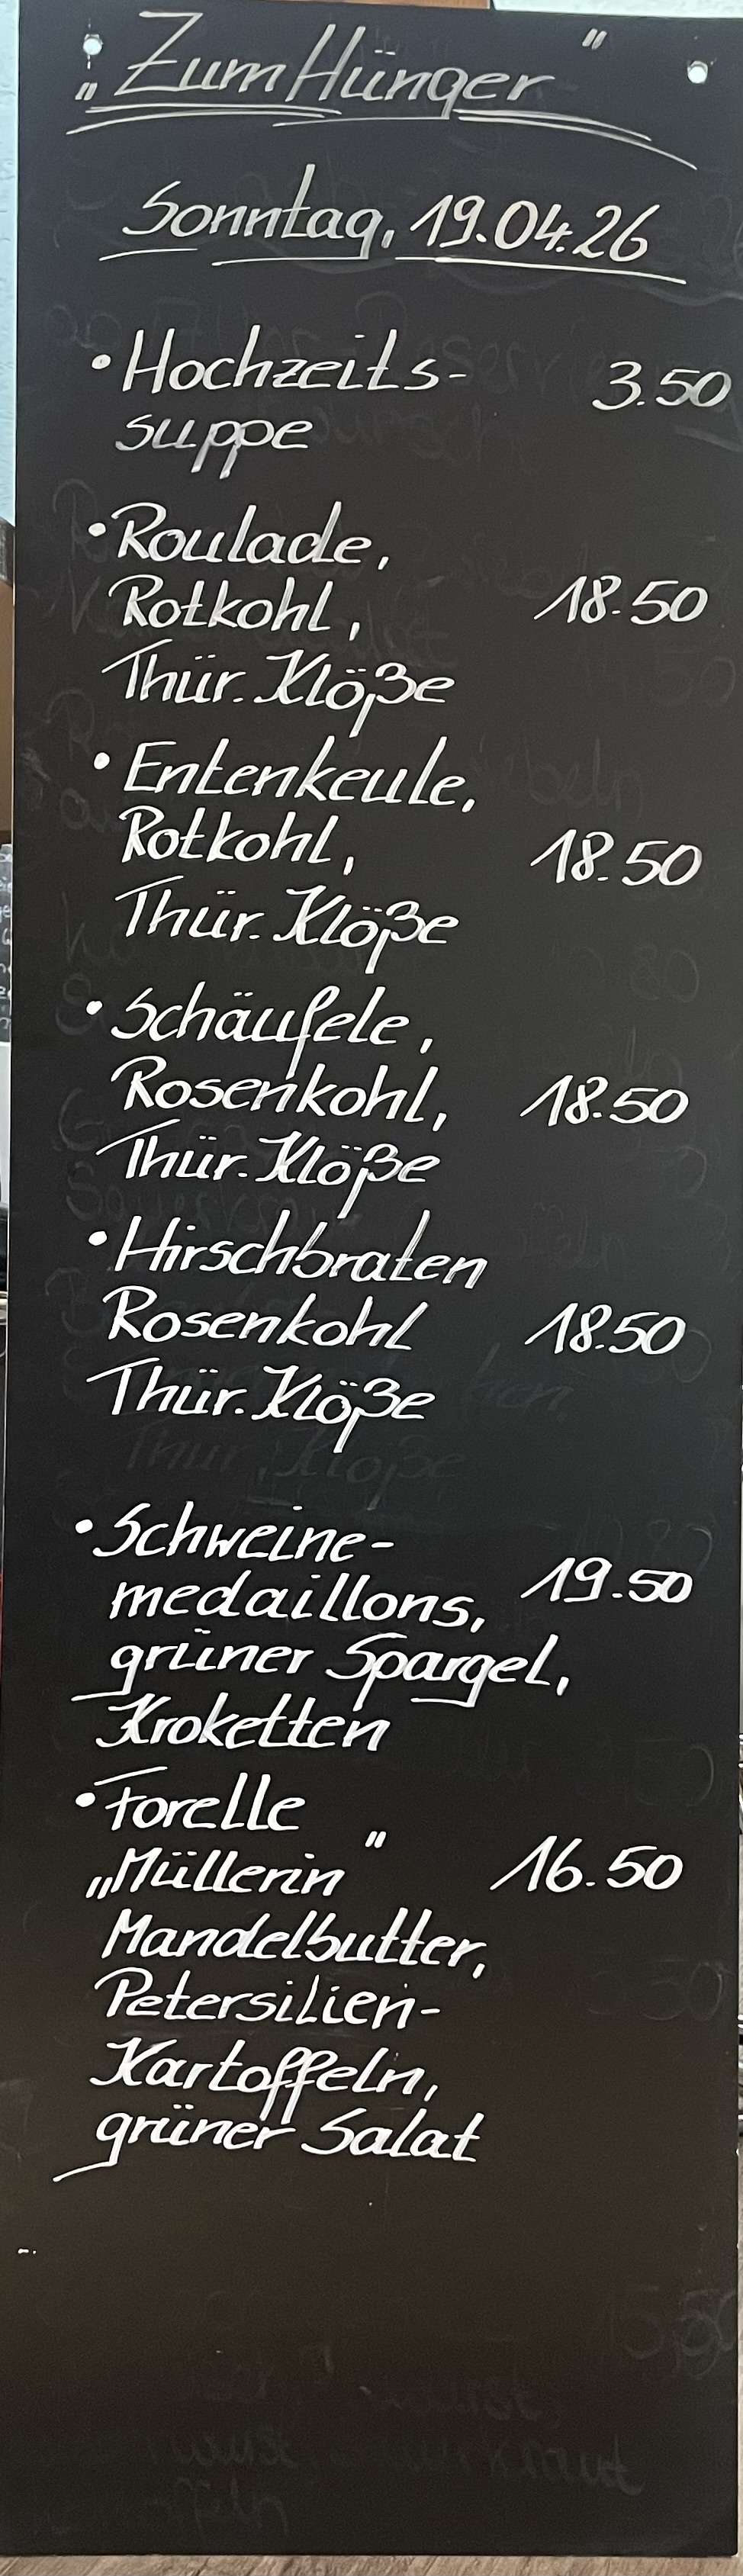 „Zum Hünger"
Sonntag, 19.04.26
• Hochzeits- 3.50
suppe
• Roulade,
Rotkohl, 18.50
Thür. Klöße
• Entenkeule,
Rotkohl, 18.50
Thür. Klöße
• Schäufele,
Rosenkohl, 18.50
Thür. Klöße
• Hirschbraten
Rosenkohl 18.50
Thür. Klöße
• Schweine-
medaillons, 19.50
grüner Spargel,
Kroketten
• Forelle
„Müllerin" 16.50
Mandelbutter,
Petersilien-
Kartoffeln,
grüner Salat